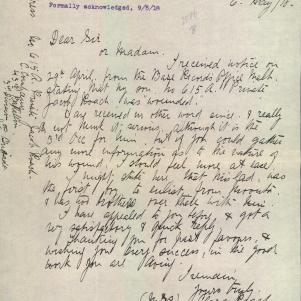 Formally acknowledged, 9/5/18
6. May /18.
Dear Sir
or Madam.
I received notice on
29th April, from the Base Records Office Melb.
stating that my son, No 615 A. Private
Jacob Roach was wounded.
I have received no other word since. I really
do not think it, serious, although it is the
3rd time for him. but if you could gather
any more information as to the nature of
his wound, I should feel, more at ease.
I might state here that this lad was
the first boy to enlist from
& has two brothers over there with him.
I have appealed to you before, & got a
very satisfactory & quick reply,
thanking you for past favours, &
wishing you every success, in the good
work you are doing.
I remain,
yours truly,
(Mrs) Roach
Address No 615 A Private Jacob Roach